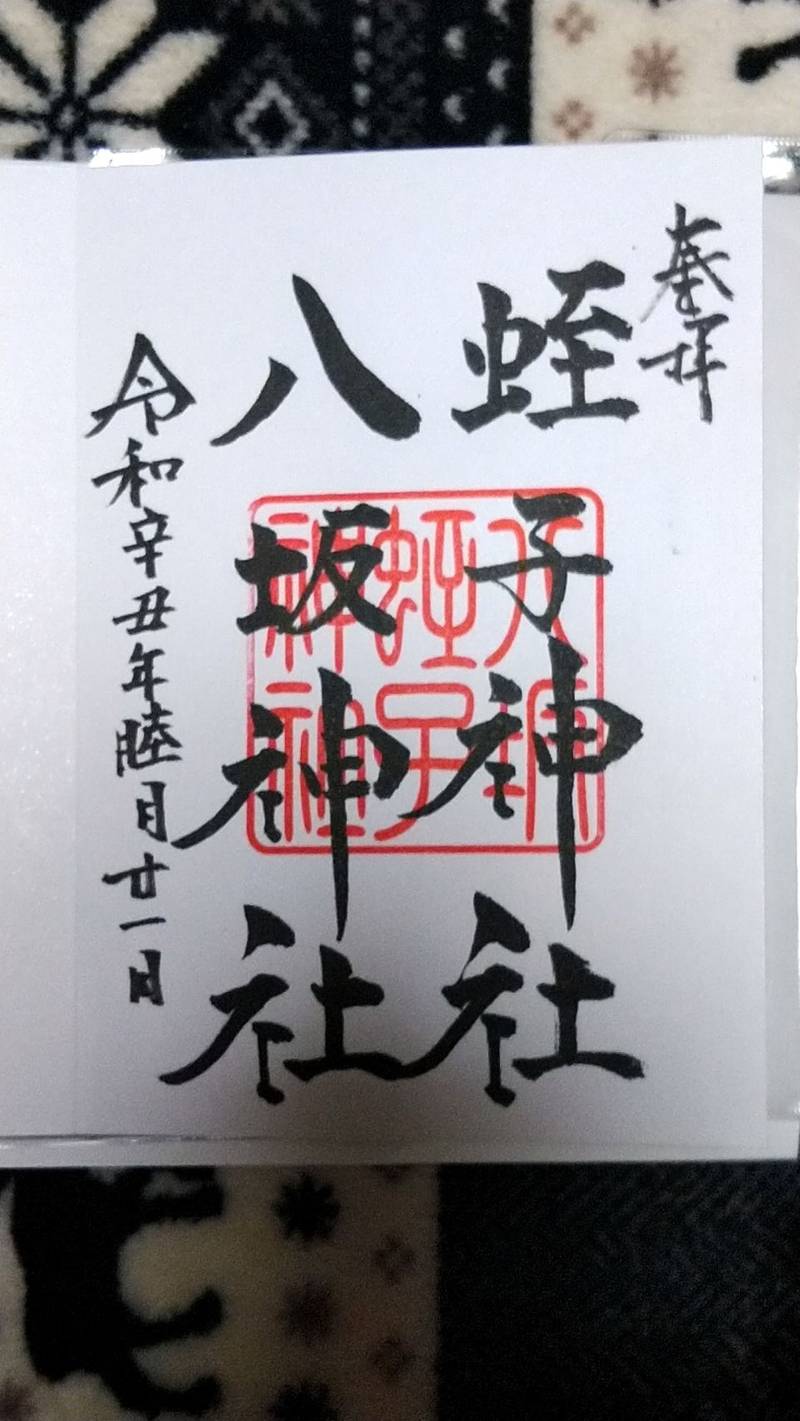 奉拝
蛭子神社
八坂神社
令和辛丑年睦月廿一日
八坂
蛭子
神社